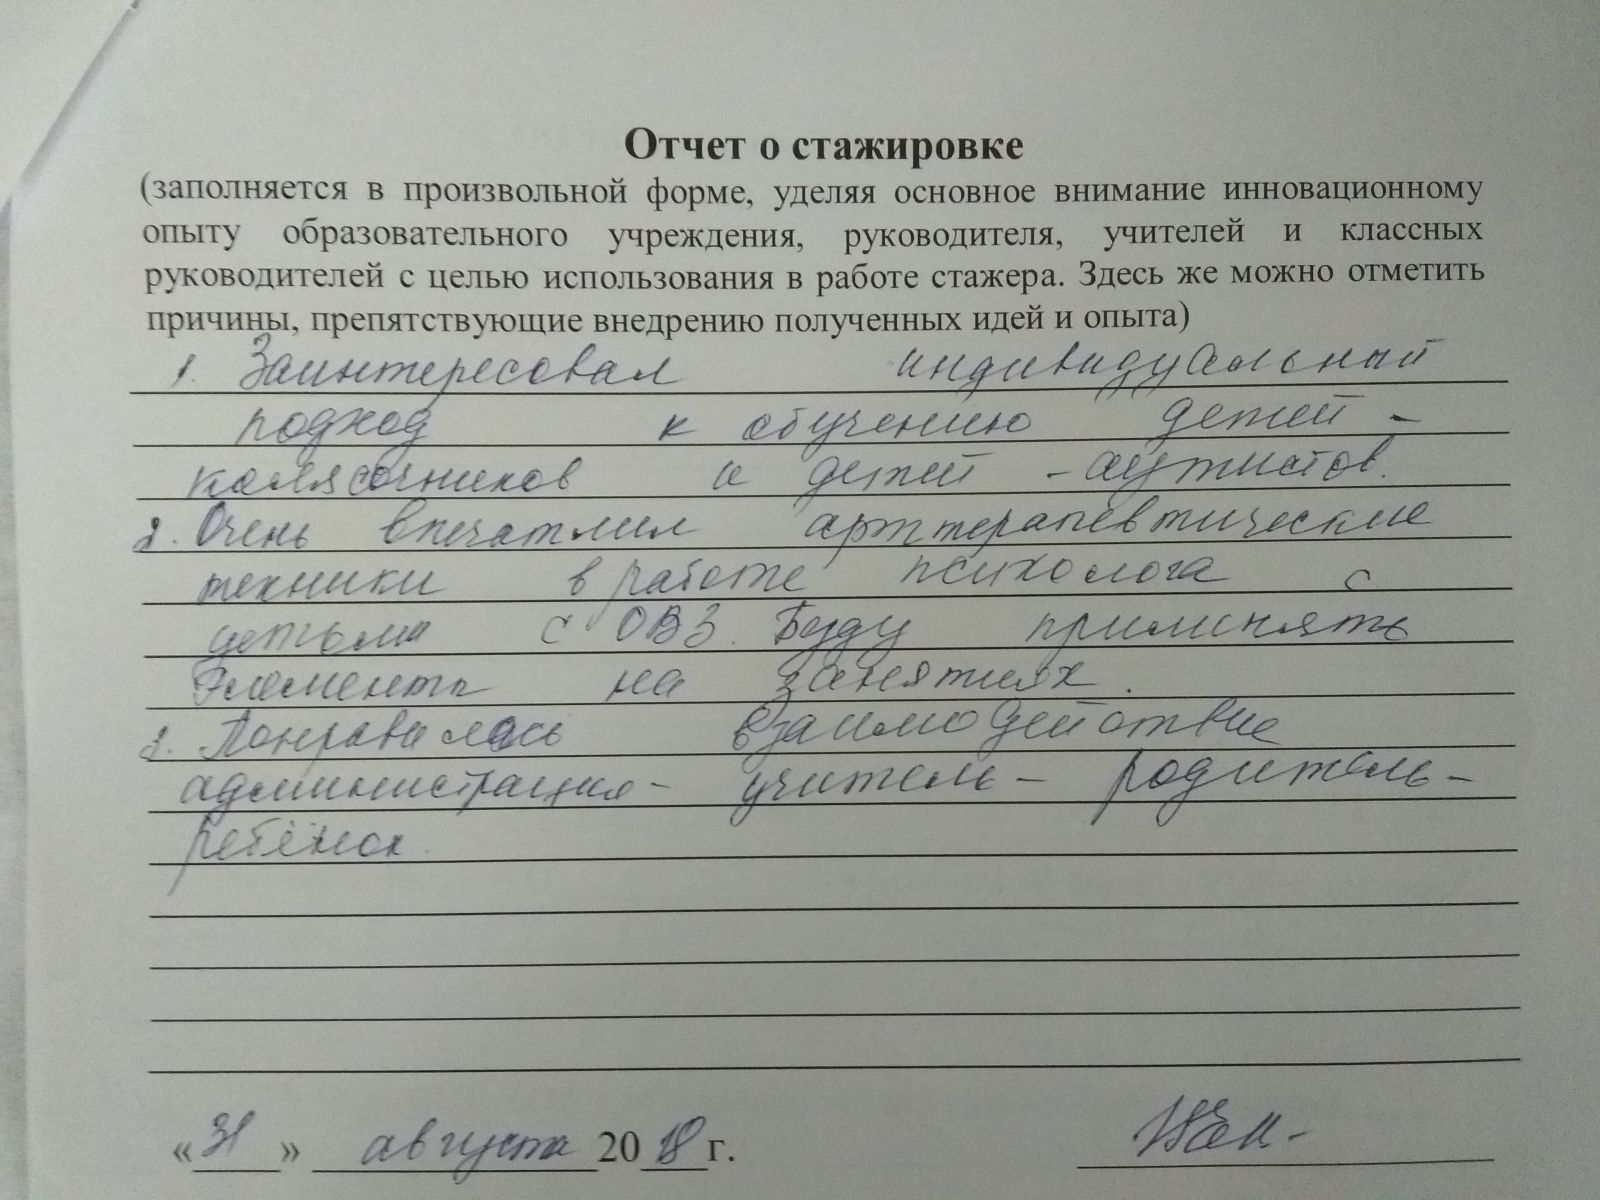 Отчет о стажировке
(заполняется в произвольной форме, уделяя основное внимание инновационному
опыту образовательного учреждения, руководителя, учителей и классных
руководителей с целью использования в работе стажера. Здесь же можно отметить
причины, препятствующие внедрению полученных идей и опыта)
1. Заинтересовал индивидуальный
подход к обучению детей -
колясочников и детей - аутистов.
2. Очень впечатлил арттерапевтические
техники в работе психолога с
детьми с ОВЗ. Буду применять
Элементы на занятиях.
3. Понравилось взаимодействие
администрация - учитель - родитель -
ребёнок.
«31» августа 2018 г.